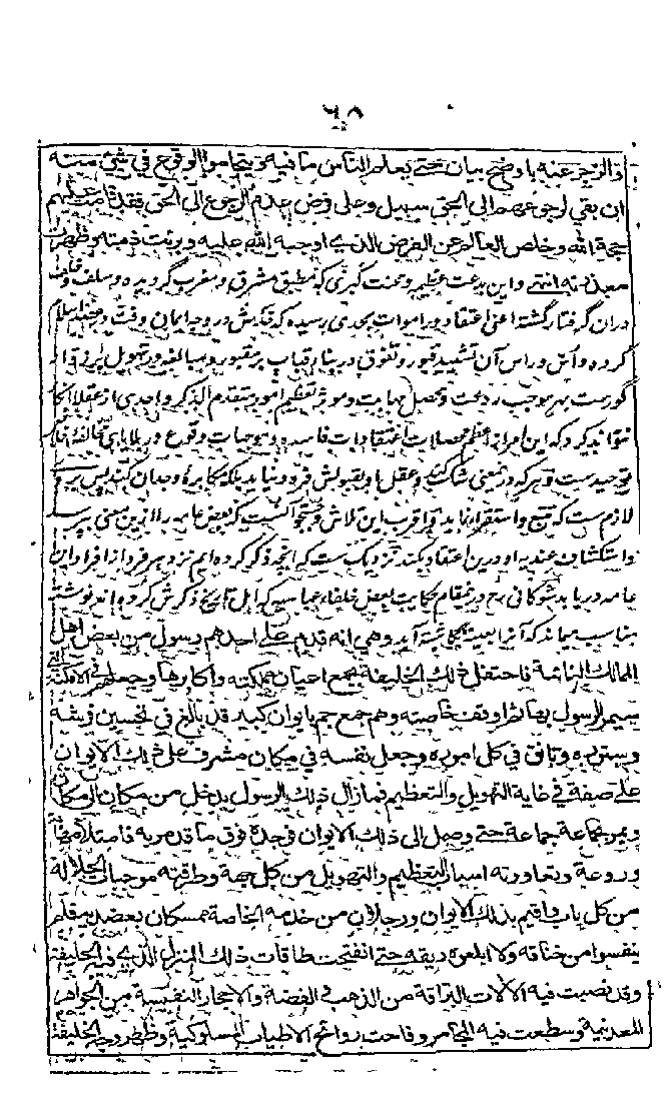 ٦٨
والزجر عنه باوضح بيان حتى يعلم الناس ما فيه ويتحاموا الوقوع في شئ منه
ان بقي لرجوعهم الى الحق سبيل وعلى فرض عدم الرجوع الى الحق فقد قامت عليهم
حجة الله وخلص العالم عن الفرض الذي اوجبه الله عليه وبرئت ذمته وظهرت
معذرته انتهى واين بدعت عظيم ومحنت كبرى كه مطبق مشرق ومغرب گرديده وسلف وخلف
دران گرفتار گشته اعنى اعتقاد در اموات بحدى رسيده كه خدش در وجه ايمان وفت در عضد اسلام
كرده واس وراس آن تشييد قبور وتفوق در بناء قباب بر مقبور ومبالغه در تهويل بر زوار
گورست بهر موجب رد تحت وتحصل مهابت وموثر تعظيم امور متقدم الذكر واحدى از عقلا انكار
نتواند كرد كه اين امر از اعظم محصلات اعتقادات فاسده وموجبات وقوع در بلاياى مخالفهٔ اخلاص
توحيدست وهر كه درينمعنى شك كند وعقل او بقبولش فرو نيايد بلكه مكابرهٔ وجدان كند پس بروى
لازم ست كه تتبع واستقرا نمايد واقرب اين تلاش وجستجو آنست كه بعض عامه را ازين معنى بپرسد
واستكشاف عنديه او درين اعتقاد بكند نزديك ست كه انچه ذكر كرده ايم نزد هر فرد از افراد اين
عامه دريابد شوكانى رح درينمقام حكايت بعض خلفاء عباسيه كه اهل تاريخ ذكرش كرده اند نوشته
مناسب مينمايد كه آنرا بعينه نگاشته آيد وهي انه قدم على احدهم رسول من بعض اهل
الممالك النائية فاحتفل ذلك الخليفة بجمع اعيان مملكته واكابرها وجعلهم في الامكنة التي
سيمر الرسول بها ثم اوقف خاصته وهم جمع جم بايوان كبير قد بالغ في تحسين فرشه
وستوره وتانق في كل اموره وجعل نفسه في مكان مشرف على ذلك الايوان
على صفة في غاية التهويل والتعظيم فما زال ذلك الرسول يدخل من مكان الى مكان
ويمر بجماعة جماعة حتى وصل الى ذلك الايوان فوجده فوق ما قد مر به فامتلأ مهابة
وروعة وتعاورته اسباب التعظيم والتهويل من كل جهة وطرقته موجبات الجلالة
من كل باب واقيم بذلك الايوان ورجلان من خدمه الخاصة ممسكان بعضديه فلم
ينفسوا من خناقه ولا ابلعوه ريقه حتى انفتحت طاقات ذلك المنزل الذي فيه الخليفة
وقد نصبت فيه الالات البراقة من الذهب والفضة والاحجار النفيسة من الجواهر
المعدنية وسطعت فيه المجامر وفاحت روائح الاطياب الملوكية وظهر وجه الخليفة